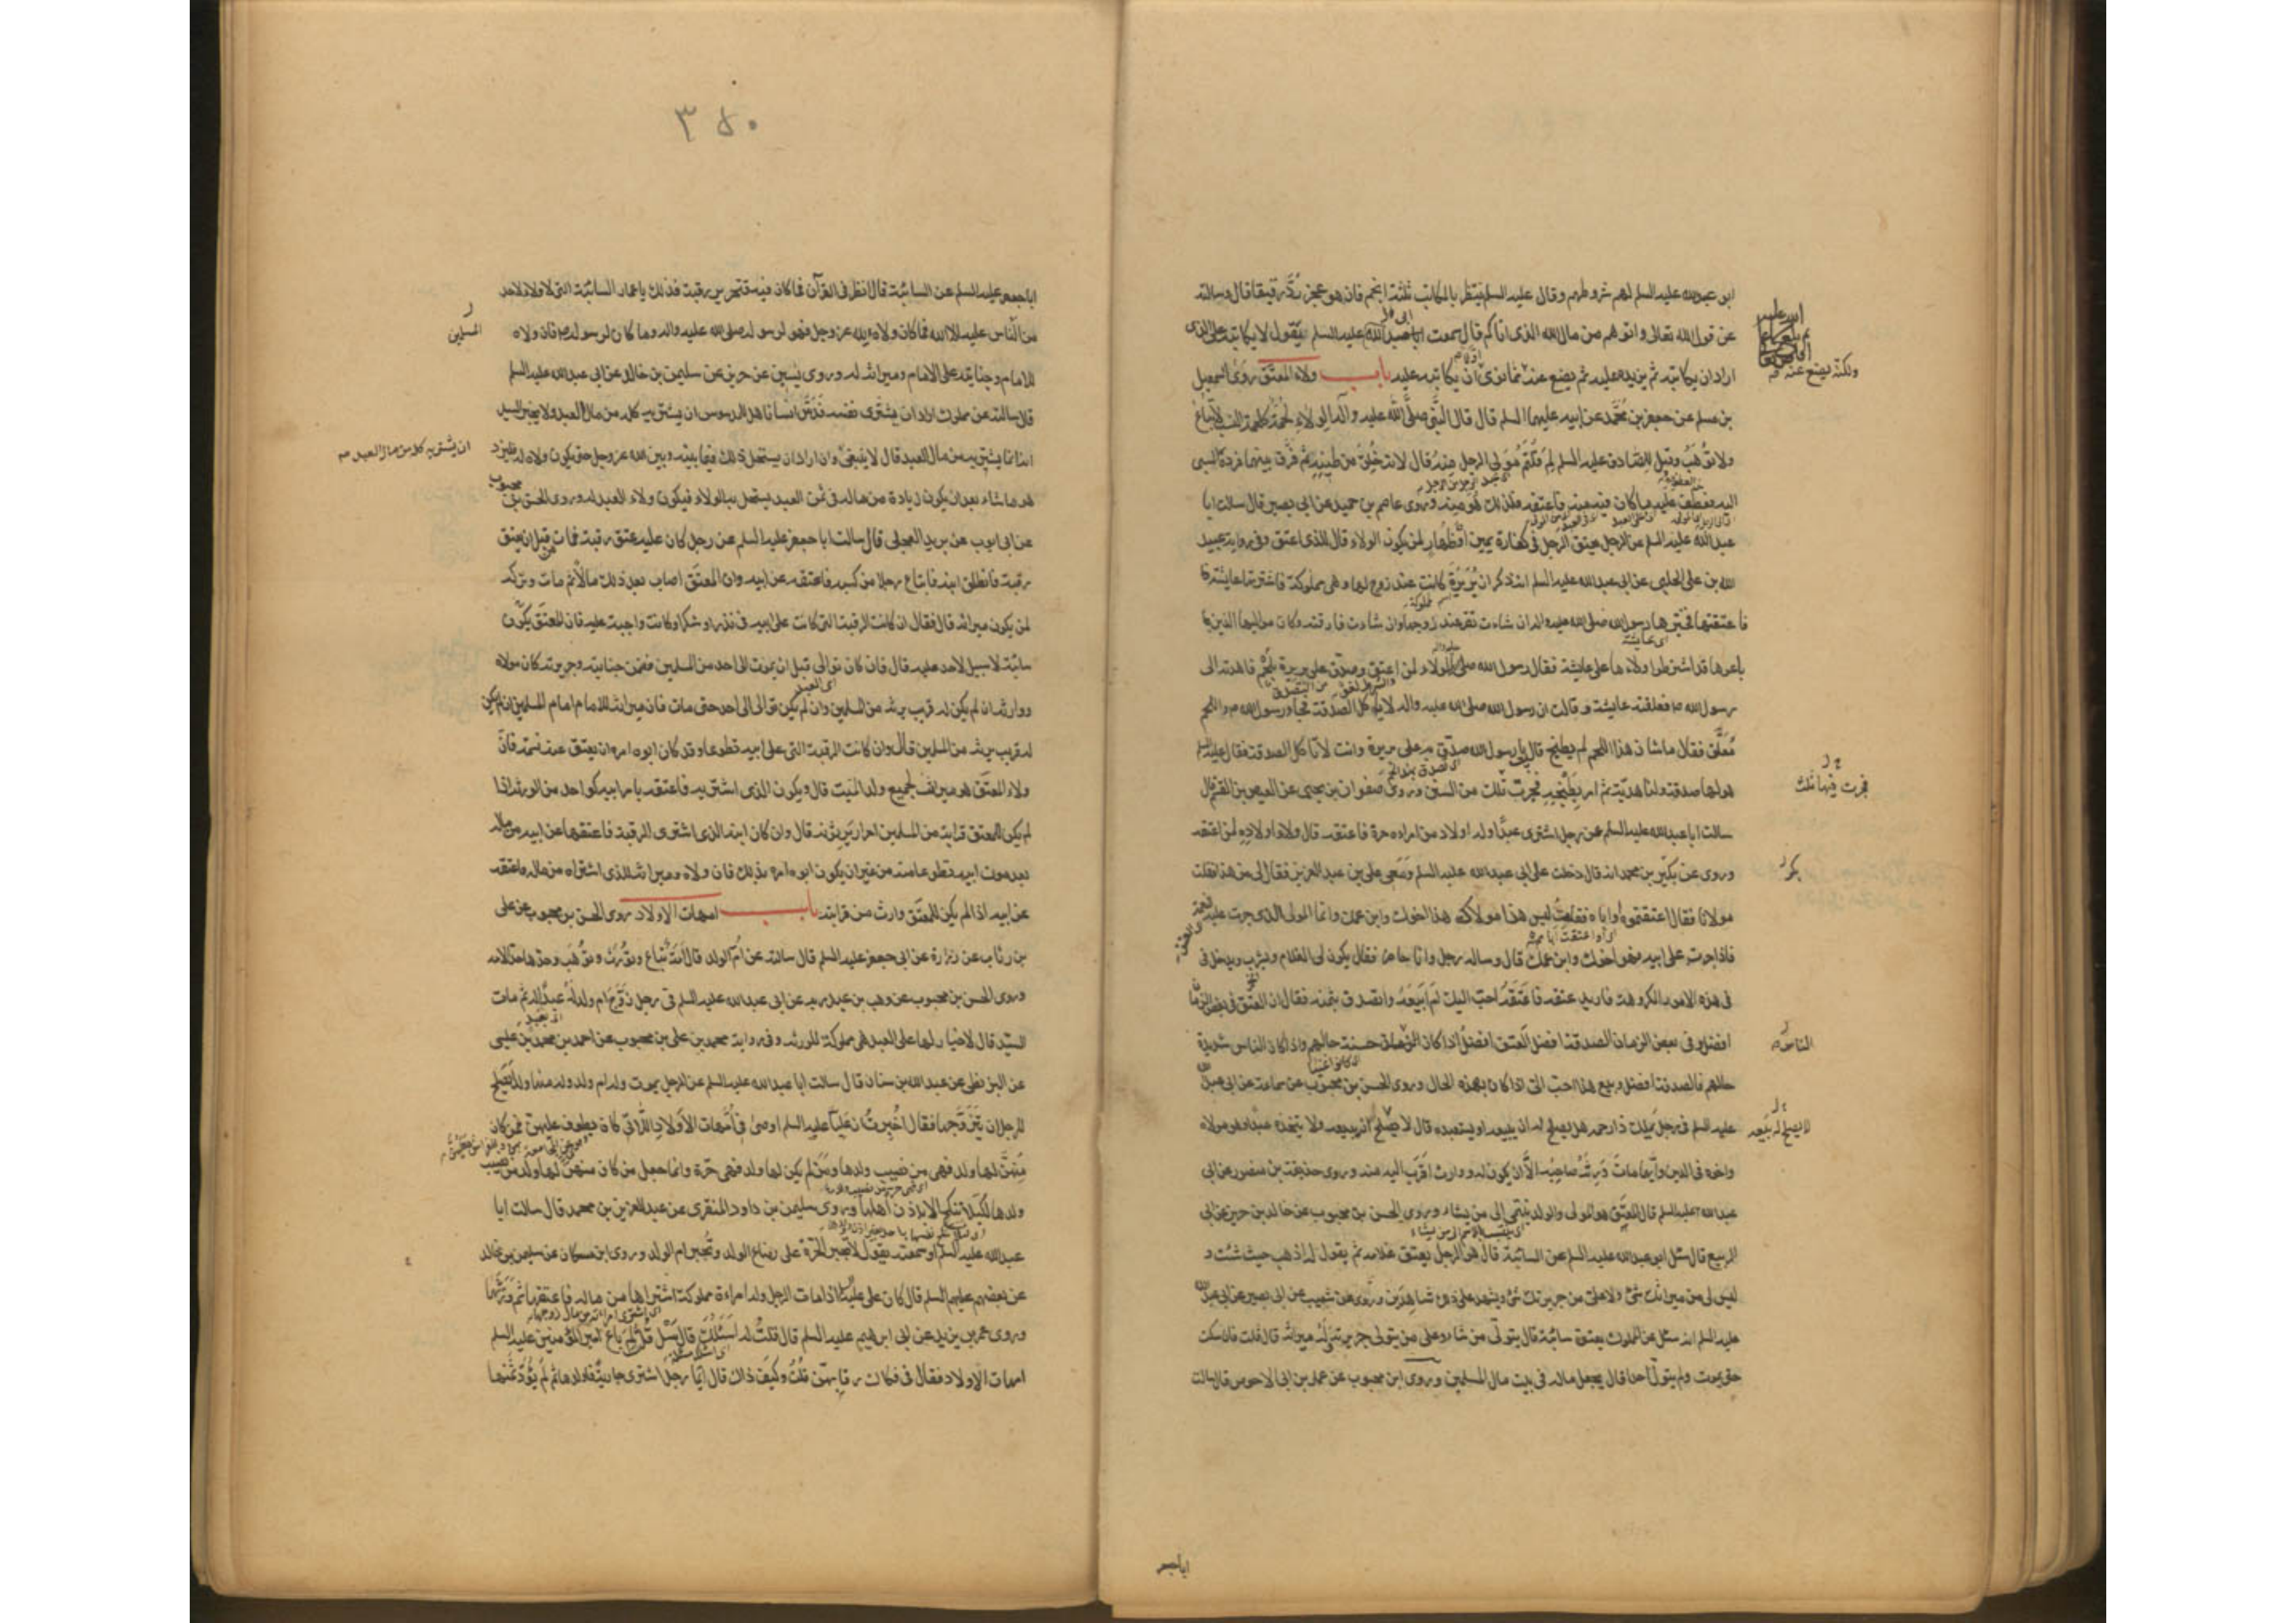 ابو عبدالله عليه السلم لهم شروطهم وقال عليه السلم ينتظر بالمكاتب ثلثة انجم فان هو عجز رُدَّ رقيقا قال وسالته
عن قول الله تعالى واتوهم من مال الله الذى اتاكم قال سمعت ابا عبدالله عليه السلم يقول لا يكاتبه على الذى
اراد ان يكاتبه ثم يزيد عليه ثم يضع عنه مما نوى ان يكاتبه عليه باب ولاء المعتق روى اسمعيل
بن مسلم عن جعفر بن محمد عن ابيه عليهما السلم قال قال النبى صلى الله عليه وآله الولاء لحمة كلحمة النسب لا تباع
ولا توهب وقيل للصادق عليه السلم لم قلتم مولى الرجل منه قال لانه خلق من طينته ثم فرق بينهما فرده السبى
اليه فعطف عليه ما كان فيه منه فاعتقه فلذلك هو منه وروى عاصم بن حميد عن ابى بصير قال سالت ابا
عبدالله عليه السلم عن الرجل يعتق الرجل فى كفارة يمين او ظهار لمن يكون الولاء قال للذى اعتق وفى رواية عبيد
الله بن على الحلبى عن ابى عبدالله عليه السلم انه ذكر ان بُرَيرَة كانت عند زوج لها وهى مملوكة فاشترتها عايشة فا
فاعتقتها فخيرها رسول الله صلى الله عليه واله ان شاءت تقر عند زوجها وان شاءت فارقته وكان مواليها الذين با
باعوها قد اشترطوا ولاءها على عايشة فقال رسول الله صلى الولاء لمن اعتق وصدّق على بريرة بلحم فاهدته الى
رسول الله ص فعلقته عايشة وقالت ان رسول الله صلى الله عليه واله لا ياكل الصدقة فجاء رسول الله ص واللحم
مُعلّق فقال ما شان هذا اللحم لم يطبخ قالت يا رسول الله صدّق به على بريرة وانت لا تاكل الصدقة فقال عليه السلم
هو لها صدقة ولنا هدية ثم امر بطبخه فجرت ثلث من السنن وروى صفوان بن يحيى عن العيص بن القسم قال
سالت ابا عبدالله عليه السلم عن رجل اشترى عبدًا وله اولاد من امراه حرة فاعتقه قال ولاء اولاده لمن اعتقه
وروى عن بكير بن محمد انه قال دخلت على ابى عبدالله عليه السلم ومعى على بن عبد العزيز فقال لى من هذا فقلت
مولانا فقال اعتقتموه او اباه فقلت ليس هذا مولاك هذا اخوك وابن عمك وانما المولى الذى جرت عليه النعمة
فاذا جرت على ابيه فهو اخوك وابن عمك قال وساله رجل وانا حاضر فقال يكون لى الغلام ويشرب ويدخل فى
فى هذه الامور المكروهة فاريد عتقه فاعتقه احب اليك ام ابيعه واتصدق بثمنه فقال ان العتق فى بعض الزمان
افضل وفى بعض الزمان الصدقة افضل العتق افضل اذا كان الناس حسنة حالهم واذا كان الناس شديدة
حالهم فالصدقة افضل وبيع هذا احب الى اذا كان بهذه الحال وروى الحسن بن محبوب عن سماعة عن ابى عبدالله
عليه السلم فى رجل يملك ذا رحمه هل يصلح له ان يبيعه او يستعبده قال لا يصلح له ان يبيعه ولا يتخذه عبدا وهو مولاه
واخوه فى الدين وايهما مات ورثه صاحبه الا ان يكون له وارث اقرب اليه منه وروى حذيفة بن منصور عن ابى
عبدالله عليه السلم قال المعتق هو المولى والولد ينتمى الى من يشاء وروى الحسن بن محبوب عن خالد بن جرير عن ابى
الربيع قال سئل ابو عبدالله عليه السلم عن السائبة قال هو الرجل يعتق غلامه ثم يقول له اذهب حيث شئت و
ليس لى من ميراثك شئ ولا علىّ من جريرتك شئ ويشهد على ذلك شاهدين وروى عن شعيب عن ابى بصير عن ابى عبدالله
عليه السلم انه سئل عن المملوك يعتق سائبة قال يتولى من شاء وعلى من يتولى جريرته وله ميراثه قال قلت فان سكت
حتى يموت ولم يتول احدا قال يجعل ماله فى بيت مال المسلمين وروى ابن محبوب عن عمار بن ابى الاحوص قال سالت
ولكنه يضع عنه
فجرت فيها ثلث
بكر
الناس
لا يصلح له بيعه
اباجعفر
٣٥٠
اباجعفر عليه السلم عن السائبة قال انظر فى القرآن فما كان فيه فتحرير رقبة فذلك يا عمار السائبة التى لا ولاء لاحد
من الناس عليه الا الله فما كان ولاءه لله عز وجل فهو لرسوله صلى الله عليه واله وما كان لرسوله ص فان ولاه
للامام وجنايته على الامام وميراثه له وروى يسين عن حريز عن سليمن بن خالد عن ابى عبدالله عليه السلم
قال سالته عن مملوك اراد ان يشترى نفسه فدس انسانا هل للمدسوس ان يشتريه كله من مال العبد ولا يخبر السيد
انه انما يشتريه من مال العبد قال لا ينبغى وان اراد ان يستحل ذلك فيما بينه وبين الله عز وجل حتى يكون ولاه له فليزد
هو ما شاء بعد ان يكون زيادة من ماله فى ثمن العبد يستحل به الولاء فيكون ولاء العبد له وروى الحسن بن محبوب
عن ابى ايوب عن بريد العجلى قال سالت ابا جعفر عليه السلم عن رجل كان عليه عتق رقبة فمات من قبل ان يعتق
رقبة فانطلق ابنه فابتاع رجلا من كسبه فاعتقه عن ابيه وان المعتق اصاب بعد ذلك مالا ثم مات وتركه
لمن يكون ميراثه قال فقال ان كانت الرقبة التى كانت على ابيه فى نذر او شكر او كانت واجبة عليه فان المعتق يكون
سائبة لا سبيل لاحد عليه قال فان كان توالى قبل ان يموت الى احد من المسلمين فضمن جنايته وجريرته كان مولاه
ووارثه ان لم يكن له قريب يرثه من المسلمين وان لم يكن توالى الى احد حتى مات فان ميراثه للامام امام المسلمين ان لم يكن
له قريب يرثه من المسلمين قال وان كانت الرقبة التى على ابيه تطوعا وقد كان ابوه امره ان يعتق عنه نسمة فان
ولاء المعتق هو ميراث لجميع ولد الميت قال ويكون الذى اشتريه فاعتقه بامر ابيه كواحد من الورثة اذا
لم يكن للمعتق قرابة من المسلمين احرار يرثونه قال وان كان ابنه الذى اشترى الرقبة فاعتقها عن ابيه من ماله
بعد موت ابيه تطوعا منه من غير ان يكون ابوه امره بذلك فان ولاه وميراثه للذى اشتراه من ماله فاعتقه
عن ابيه اذا لم يكن للمعتق وارث من قرابته باب امهات الاولاد روى الحسن بن محبوب عن على
بن رئاب عن زرارة عن ابى جعفر عليه السلم قال سالته عن ام الولد قال امة تباع وتورث وتوهب وحدها حد الامه
وروى الحسن بن محبوب عن وهب بن عبد ربه عن ابى عبدالله عليه السلم فى رجل زوج ام ولد له عبدًا له ثم مات
السيد قال لا خيار لها على العبد هى مملوكة للورثة وفى رواية محمد بن على بن محبوب عن احمد بن محمد بن عيسى
عن البزنطى عن عبدالله بن سنان قال سالت ابا عبدالله عليه السلم عن الرجل يموت وله ام ولد وله منها ولد ايصلح
للرجل ان يتزوجها فقال اخبرت ان عليا عليه السلم اوصى فى امهات الاولاد اللاتى كان يطوف عليهن فمن كان
منهن لها ولد فهى من نصيب ولدها ومن لم يكن لها ولد فهى حرة وانما جعل من كان منهن لها ولد من نصيب
ولدها لكيلا تنكح الا باذن اهلها وروى سليمن بن داود المنقرى عن عبد العزيز بن محمد قال سالت ابا
عبدالله عليه السلم او سمعته يقول لا تجبر الحرة على رضاع الولد وتجبر ام الولد وروى ابن مسكان عن سليمن بن خالد
عن بعضهم عليهم السلم قال كان على عليه السلم اذا مات الرجل وله امراءة مملوكة اشتراها من ماله فاعتقها ثم ورثها
وروى عمر بن يزيد عن ابى ابرهيم عليه السلم قال قلت له اسئلك قال سل قلت لم باع امير المؤمنين عليه السلم
امهات الاولاد فقال فى فكاك رقابهن قلت وكيف ذاك قال ايما رجل اشترى جارية فاولدها ثم لم يؤد ثمنها
المسلمين
ان يشتريه كله من مال العبد